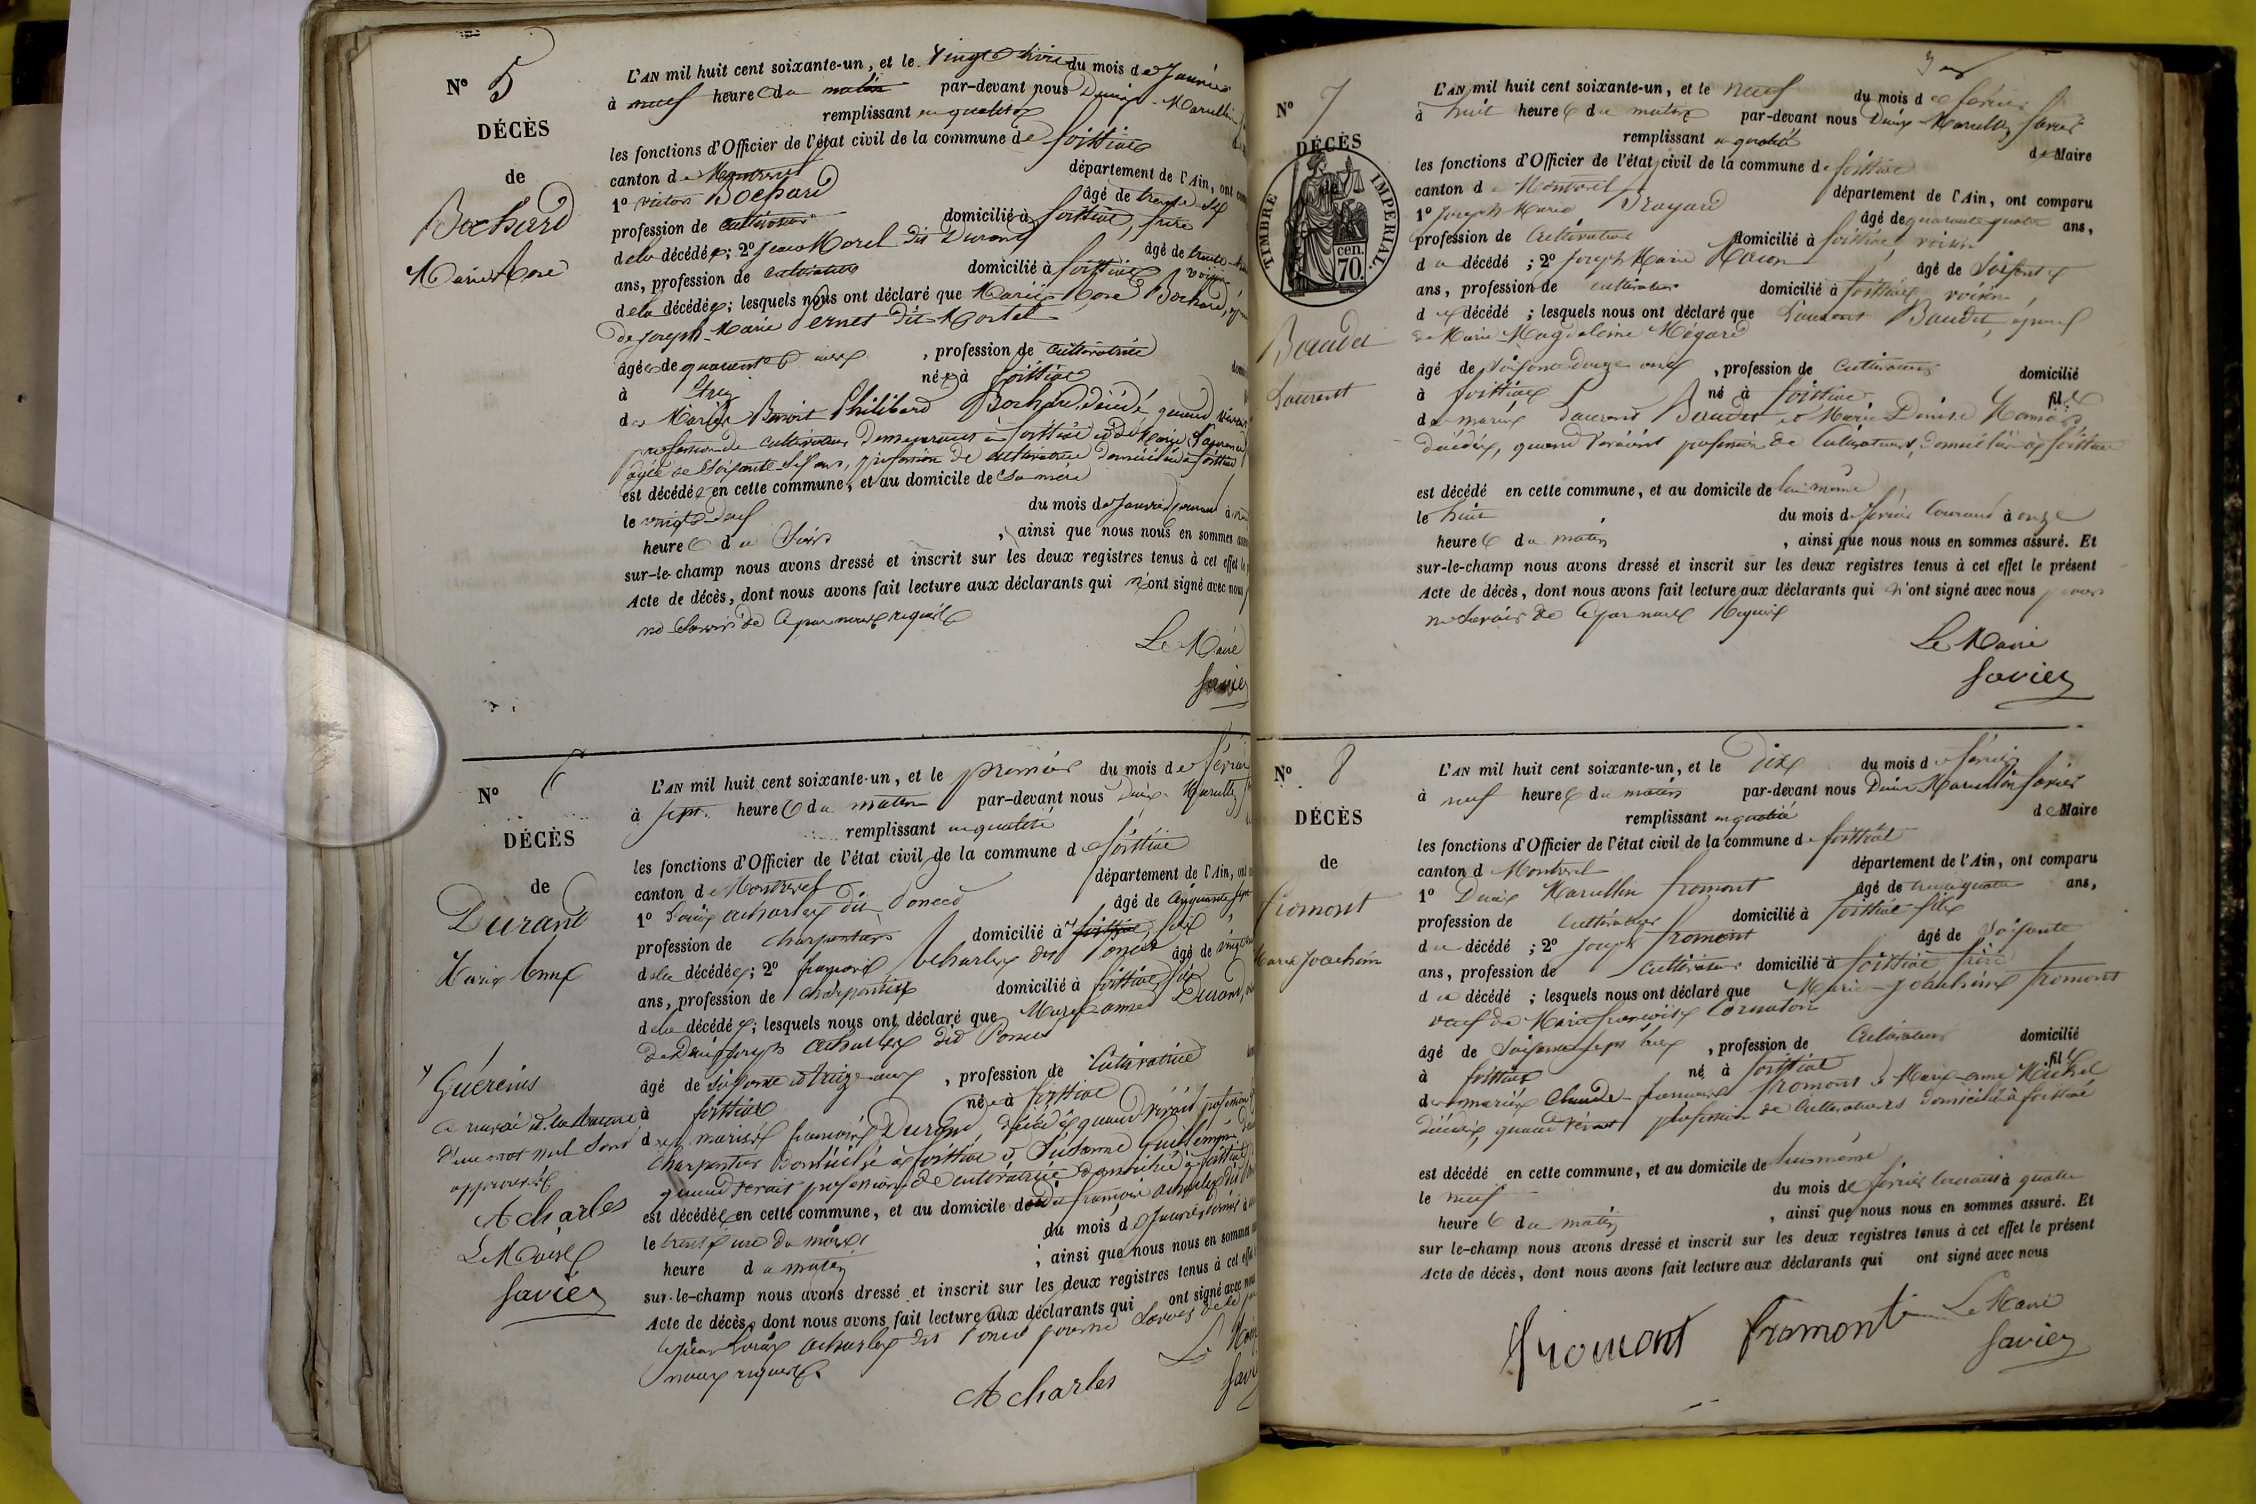 N° 5
DÉCÈS
de
Bochard
Marie Rose
L'AN mil huit cent soixante-un, et le vingt trois du mois de Janvier
à neuf heures du matin par-devant nous Denis Marcellin
remplissant en qualité
les fonctions d'Officier de l'état civil de la commune de foissiat
canton de Montrevel département de l'Ain, ont
1° victor Bochard âgé de trente six
profession de cultivateur domicilié à foissiat, frère
de la décédée; 2° Jean Morel dit Durand âgé de trente
ans, profession de cultivateur domicilié à foissiat voisin
de la décédée; lesquels nous ont déclaré que Marie Rose Bochard,
de joseph Marie Pernet dit Morlet
âgée de quarante ans, profession de cultivatrice
à Etrez née à foissiat
de Mariés Benoit Philibert Bochard, décédé quand vivait
profession de cultivateur demeurant à foissiat et de Marie
âgée de soixante six ans, profession de cultivatrice domiciliée à foissiat
est décédée en cette commune, et au domicile de sa mère
le vingt deux du mois de Janvier courant à
heures du soir, ainsi que nous nous en sommes
sur-le-champ nous avons dressé et inscrit sur les deux registres tenus à cet effet le
Acte de décès, dont nous avons fait lecture aux déclarants qui n'ont signé avec nous
ne savoir de ce par nous requis
Le Maire
Savier
N° 6
DÉCÈS
de
Durand
Marie Anne
L'AN mil huit cent soixante-un, et le premier du mois de février
à sept heures du matin par-devant nous Denis Marcellin
remplissant en qualité
les fonctions d'Officier de l'état civil de la commune de foissiat
canton de Montrevel département de l'Ain, ont
1° Louis acharles dit Poncet âgé de cinquante sept
profession de charpentier domicilié à foissiat, fils
de la décédée; 2° françois acharles dit Poncet âgé de vingt
ans, profession de charpentier domicilié à foissiat fils
de la décédée; lesquels nous ont déclaré que Marie anne Durand,
de Denis joseph acharles dit Poncet
âgée de soixante et treize ans, profession de cultivatrice
à foissiat née à foissiat
des mariés françois Durand, décédé quand vivait profession
charpentier domicilié à foissiat et Suzanne Guillemin
quand vivait profession de cultivatrice domiciliée à foissiat
est décédée en cette commune, et au domicile de françois acharles dit
le trente un du mois du mois de Janvier dernier à
heure du matin, ainsi que nous nous en sommes
sur-le-champ nous avons dressé et inscrit sur les deux registres tenus à cet effet
Acte de décès, dont nous avons fait lecture aux déclarants qui ont signé avec nous
Louis acharles dit Poncet pour ne savoir de ce par
nous requis
Acharles
Le Maire
Savier
Guéreins
d'une mot nul sont
approuvés
Acharles
Le Maire
Savier
N° 7
DÉCÈS
de
TIMBRE IMPERIAL.
70.
cen.
Baudet
Laurent
L'AN mil huit cent soixante-un, et le neuf du mois de février
à huit heures du matin par-devant nous Denis Marcellin Savier
remplissant en qualité de Maire
les fonctions d'Officier de l'état civil de la commune de foissiat
canton de Montrevel département de l'Ain, ont comparu
1° Joseph Marie Broyard âgé de quarante quatre ans,
profession de cultivateur domicilié à foissiat, voisin
du décédé; 2° joseph Marie âgé de soixante
ans, profession de cultivateur domicilié à foissiat, voisin
du décédé; lesquels nous ont déclaré que Laurent Baudet, époux
de Marie Magdeleine Mégard
âgé de soixante douze ans, profession de cultivateur domicilié
à foissiat né à foissiat fils
de mariés Laurent Baudet et Marie Denise
décédés, quand vivaient profession de cultivateurs, domiciliés à foissiat
est décédé en cette commune, et au domicile de lui même
le huit du mois de février courant à onze
heures du matin, ainsi que nous nous en sommes assuré. Et
sur-le-champ nous avons dressé et inscrit sur les deux registres tenus à cet effet le présent
Acte de décès, dont nous avons fait lecture aux déclarants qui n'ont signé avec nous pour
ne savoir de ce par nous requis
Le Maire
Savier
N° 8
DÉCÈS
de
fromont
Marie Joachim
L'AN mil huit cent soixante-un, et le dix du mois de février
à neuf heures du matin par-devant nous Denis Marcellin Savier
remplissant en qualité de Maire
les fonctions d'Officier de l'état civil de la commune de foissiat
canton de Montrevel département de l'Ain, ont comparu
1° Denis Marcellin fromont âgé de trente quatre ans,
profession de cultivateur domicilié à foissiat fils
du décédé; 2° joseph fromont âgé de soixante
ans, profession de cultivateur domicilié à foissiat frère
du décédé; lesquels nous ont déclaré que Marie Joachim fromont
veuf de Marie françoise Cornaton
âgé de soixante sept ans, profession de cultivateur domicilié
à foissiat né à foissiat fils
des mariés Claude françois fromont et Marie anne Michel
décédés, quand vivaient profession de cultivateurs domiciliés à foissiat
est décédé en cette commune, et au domicile de lui même
le neuf du mois de février courant à quatre
heures du matin, ainsi que nous nous en sommes assuré. Et
sur le-champ nous avons dressé et inscrit sur les deux registres tenus à cet effet le présent
Acte de décès, dont nous avons fait lecture aux déclarants qui ont signé avec nous
fromont fromont Le Maire
Savier